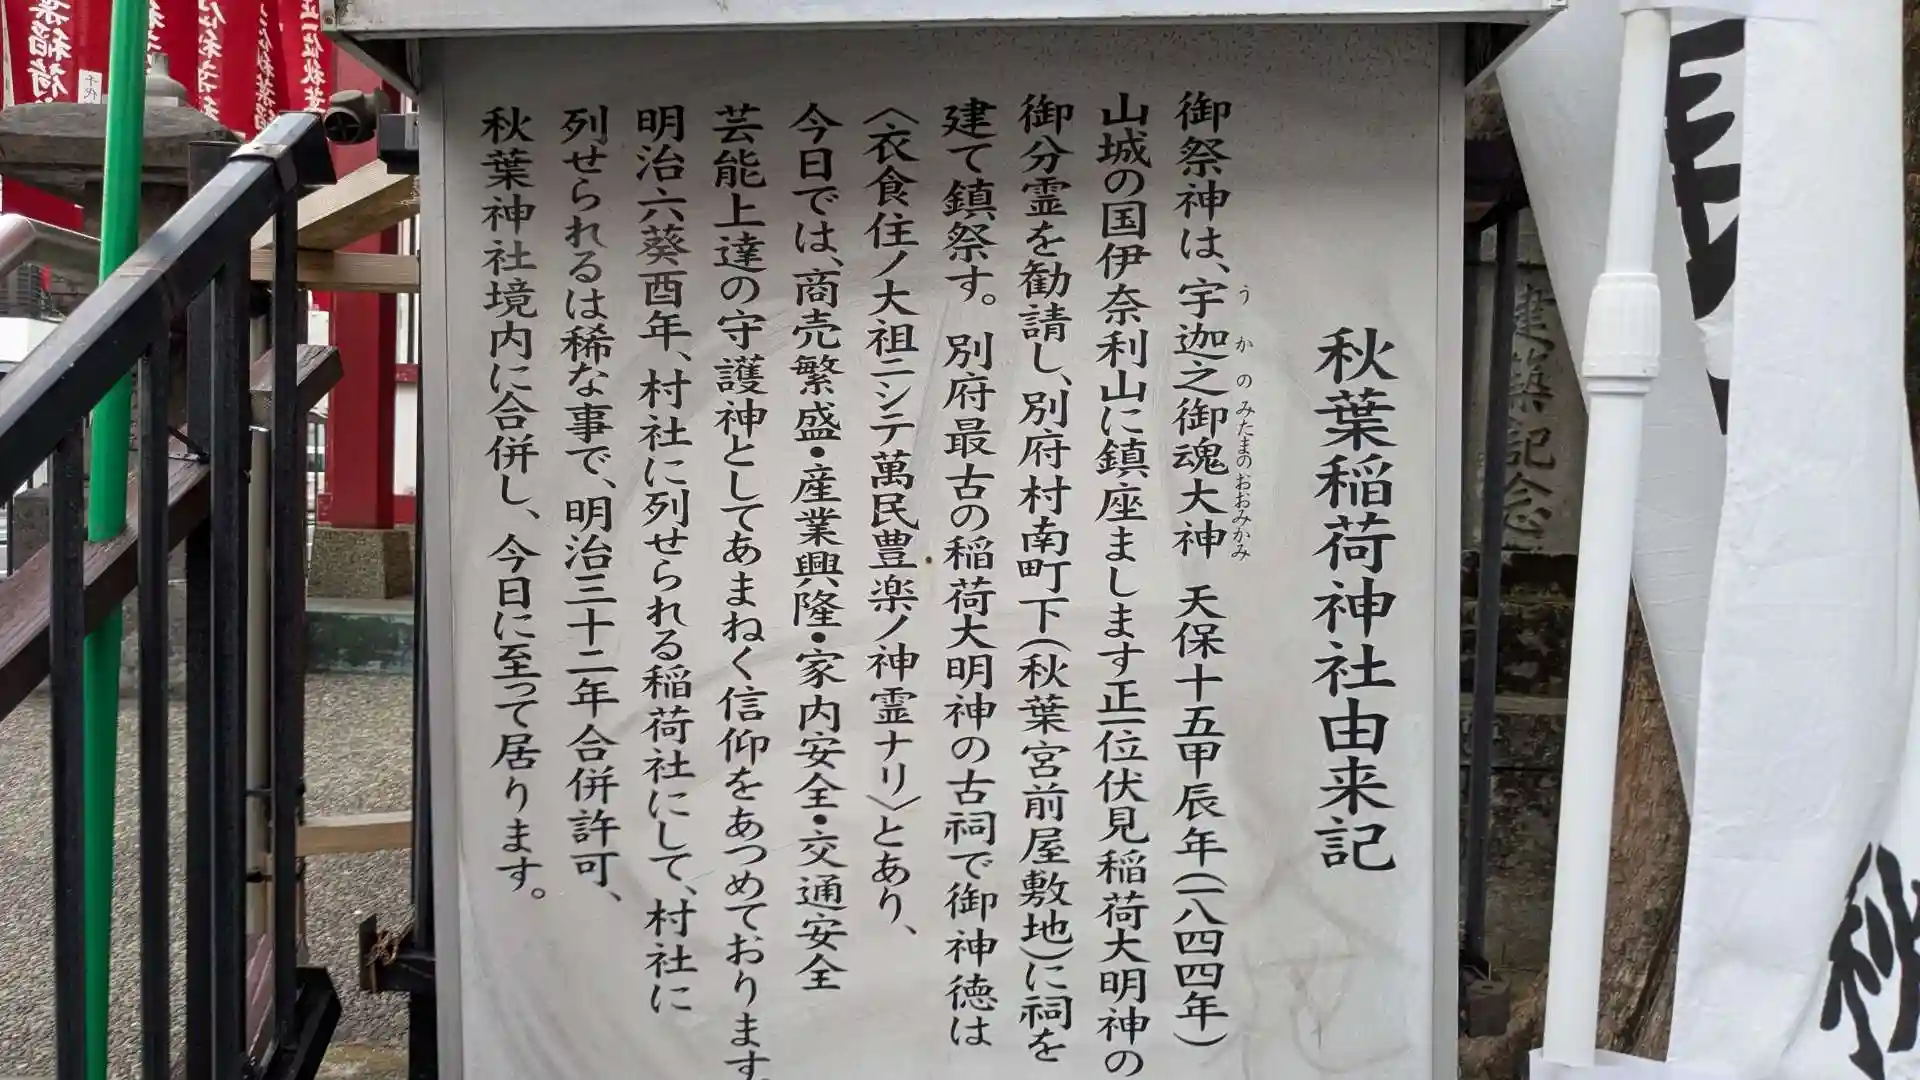 秋葉稲荷神社由来記
御祭神は、宇迦之御魂大神　天保十五甲辰年(一八四四年)
うかのみたまのおおみかみ
山城の国伊奈利山に鎮座まします正一位伏見稲荷大明神の
御分霊を勧請し、別府村南町下(秋葉宮前屋敷地)に祠を
建て鎮祭す。別府最古の稲荷大明神の古祠で御神徳は
〈衣食住ノ大祖ニシテ萬民豊楽ノ神霊ナリ〉とあり、
今日では、商売繁盛・産業興隆・家内安全・交通安全
芸能上達の守護神としてあまねく信仰をあつめております。
明治六葵酉年、村社に列せられる稲荷社にして、村社に
列せられるは稀な事で、明治三十二年合併許可、
秋葉神社境内に合併し、今日に至って居ります。
建築記念
秋